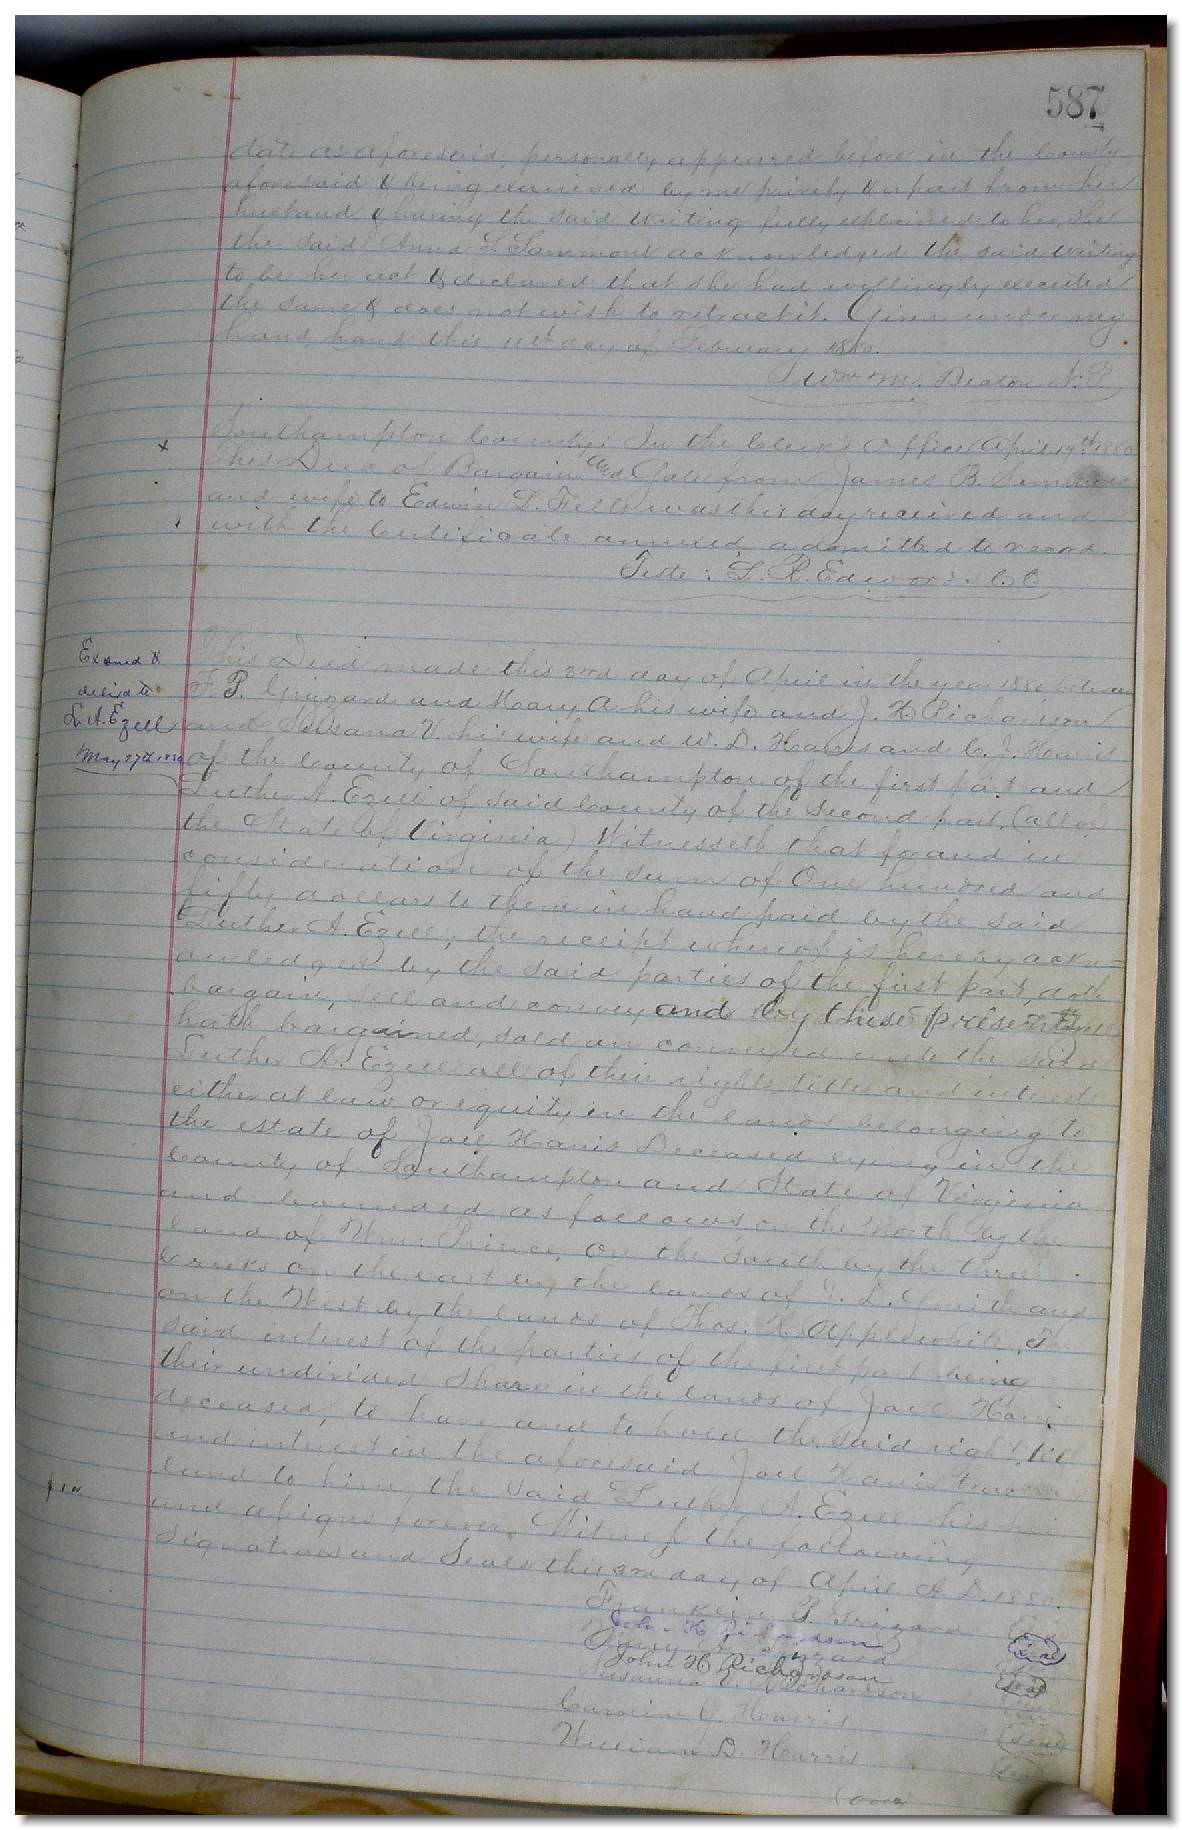 587
date as aforesaid, personally appeared before in the County
aforesaid & being examined by me privily & apart from her
husband & having the said writing fully explained to her, she
the said Anna L. Sammons acknowledged the said writing
to be her act & declared that she had willingly executed
the same & does not wish to retract it. Given under my
hand hand this 11th day of February 1880.
Wm. M. Beaton N.P.
x Southampton County: In the Clerk's Office April 19th 1880
This Deed of Bargain and Sale from James B. Sammons
and wife to Edwin T. was this day received and
with the Certificate annexed admitted to record.
Teste: L. R. Edwards C.C
Examd &
delivd to
L. A. Ezell
May 27th 1880
This Deed made this 3rd day of April in the year 1880 between
F. P. Grizzard and Mary A. his wife and J. H. Richardson
and Susana V. his wife and W. D. Harris and C. J. Harris
of the County of Southampton of the first part and
Luther A. Ezell of said County of the second part, (all of
the State of Virginia) Witnesseth that for and in
consideration of the sum of One hundred and
fifty dollars to them in hand paid by the said
Luther A. Ezell, the receipt whereof is hereby ackn-
owledged by the said parties of the first part, doth
bargain, sell and convey and by these presents
hath bargained, sold an conveyed unto the said
Luther A. Ezell all of their rights, titles and interests
either at law or equity in the lands belonging to
the estate of Joel Harris Deceased lying in the
County of Southampton and State of Virginia
and bounded as follows on the North by the
land of Wm. Prince, On the South by the three
creeks on the east by the lands of J. D. Smith and
on the West by the lands of Thos. H. Applewhite, The
said interest of the parties of the first part being
their undivided Share in the lands of Joel Harris
deceased, to have and to hold the said right, title
and interest in the aforesaid Joel Harris tract of
land to him, the said Luther A. Ezell his heirs
and assigns forever. Witness the following
signatures and Seals this 3rd day of April A. D. 1880.
Franklin P. Grizzard
John H Richardson (seal)
Mary A. Grizzard
John H Richardson (seal)
Susanna V. Richardson
Caroline J. Harris (seal)
William D. Harris
(over)